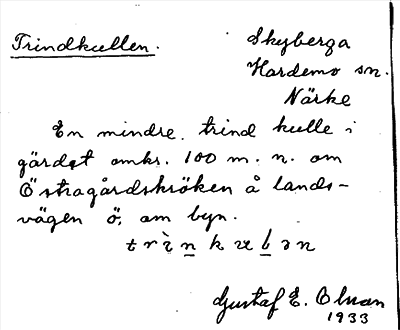 Trindkullen.
Skyberga
Hardemo sn.
Närke
En mindre, trind kulle i
gärdet omkr. 100 m. n. om
Östragårdskröken å lands-
vägen ö, om byn.
t r ì n k ɯ b ə n
Gustaf E. Olsson
1933